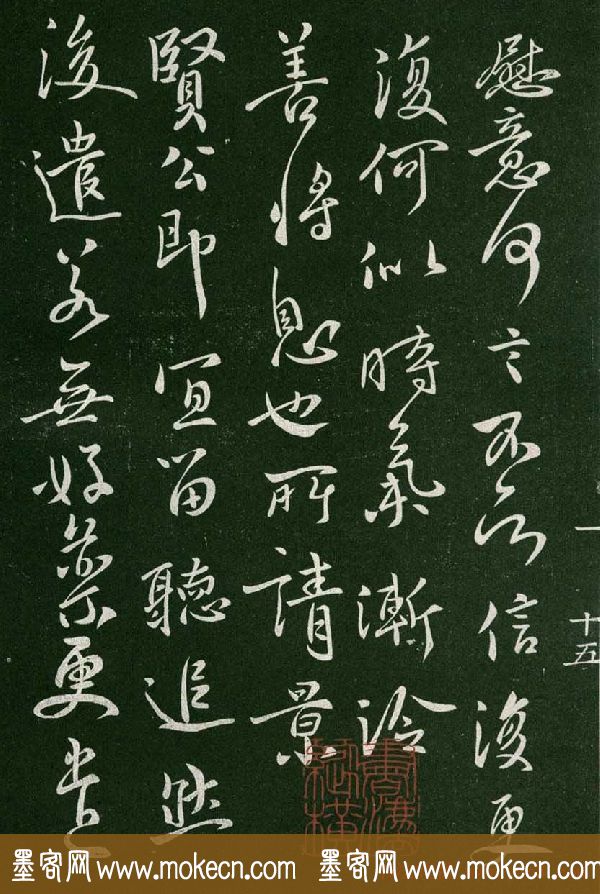 十五
慰意何言不信後更
復何似時氣漸冷
善將息也所請景
賢公即宜留聽追然
後遣若無好更
墨客网 www.mokecn.com 墨客网 www.mokecn.com